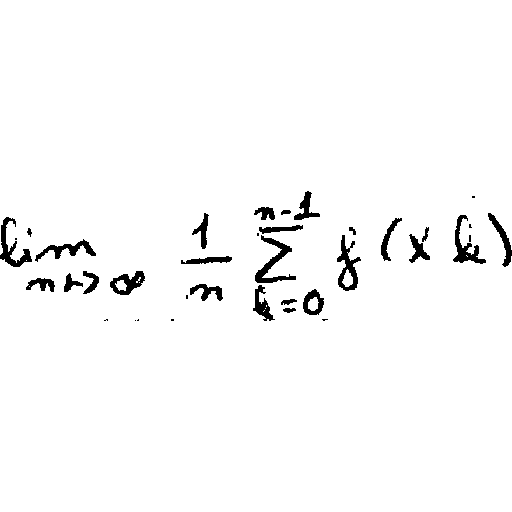 lim_{n→∞} \frac{1}{n} \sum_{k=0}^{n-1} f(x k)